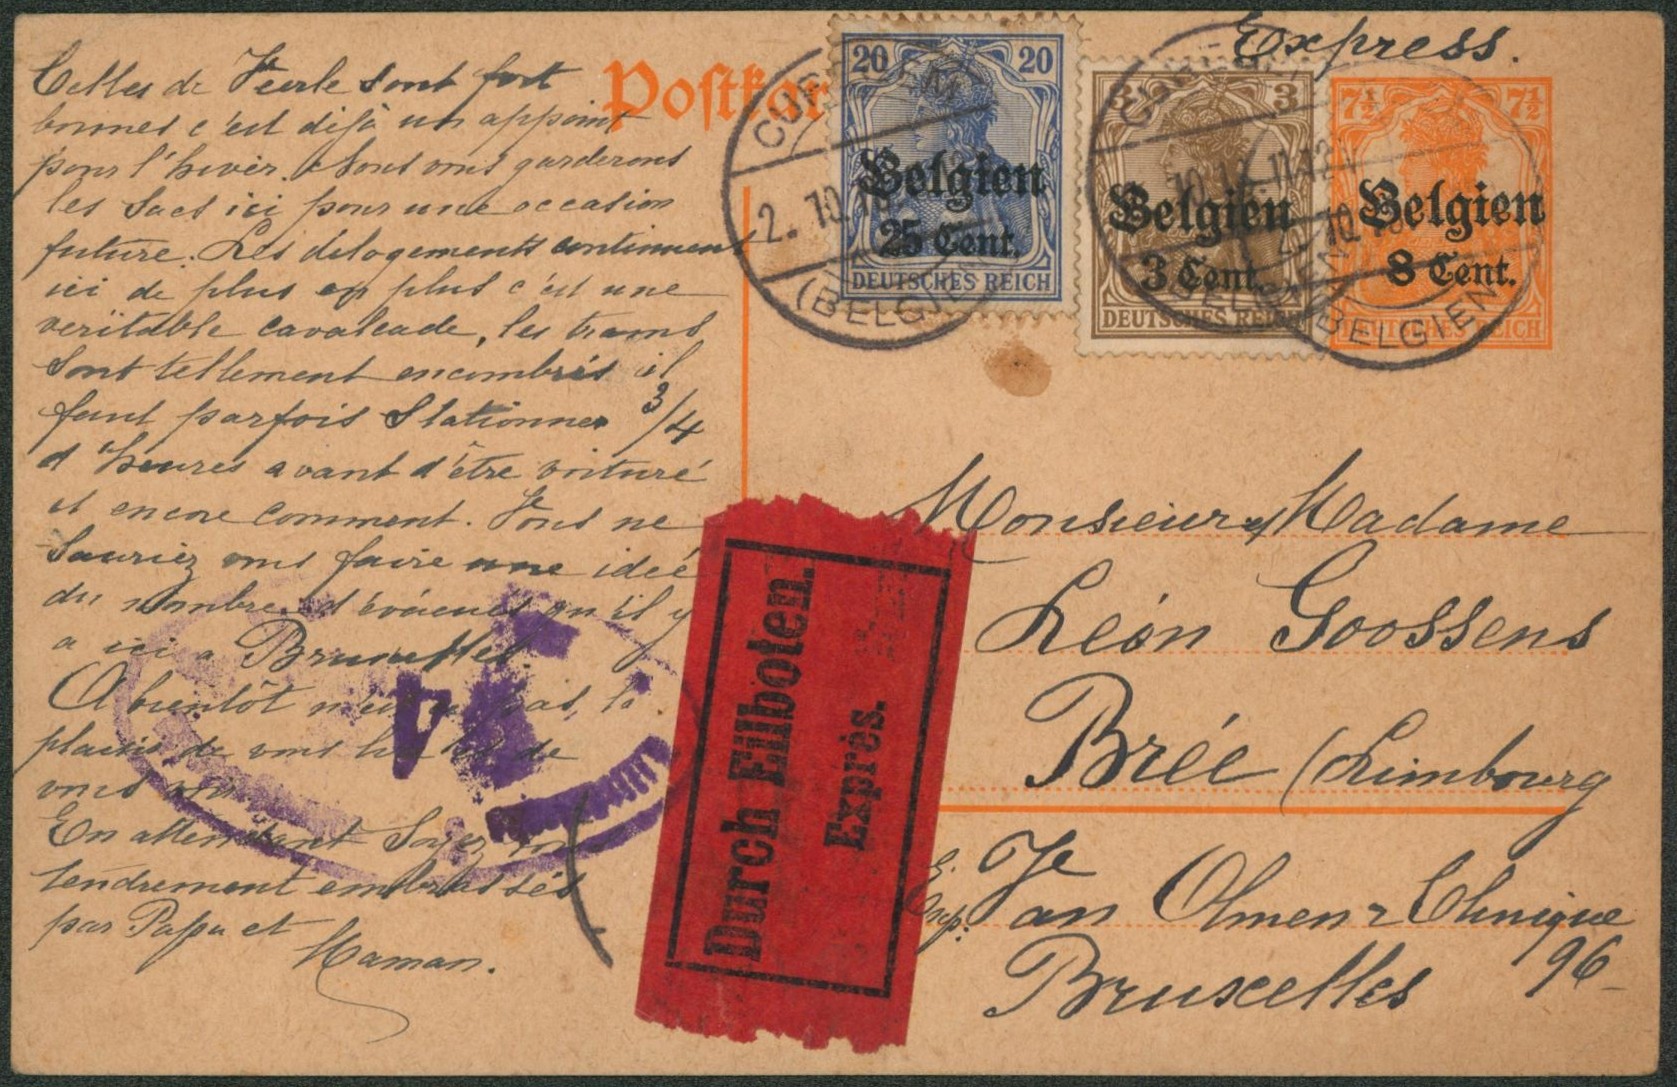 Express.
Postkar
20 20
Belgien
25 Cent.
DEUTSCHES REICH
3 3
Belgien
3 Cent.
DEUTSCHES REICH
7½ 7½
Belgien
8 Cent.
DEUTSCHES REICH
2. 10.
(BELGIEN
BELGIEN
(BELGIEN
Celles de Veerle sont fort
bonnes c'est déjà un appoint
pour l'hiver. Nous vous garderons
les sacs ici pour une occasion
future. Les délogements continuent
ici de plus en plus c'est une
veritable cavalcade, les trams
sont tellement encombrés il
faut parfois stationner 3/4
d'heures avant d'être voituré
et encore comment. Vous ne
sauriez vous faire une idée
du nombre d'évacués qu'il y
a ici a Bruxelles.
A bientôt n'est ce pas, le
plaisir de vous de
vous
En attendant soyez
tendrement embrassés
par Papa et
Maman.
Durch Eilboten.
Exprès.
Monsieur et Madame
Léon Goossens
Brée (Limbourg
Exp.
Van Olmen-
Bruxelles 96